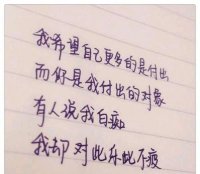 我希望自己更多的是付出
而你是我付出的对象
有人说我白痴
我却对此乐此不疲